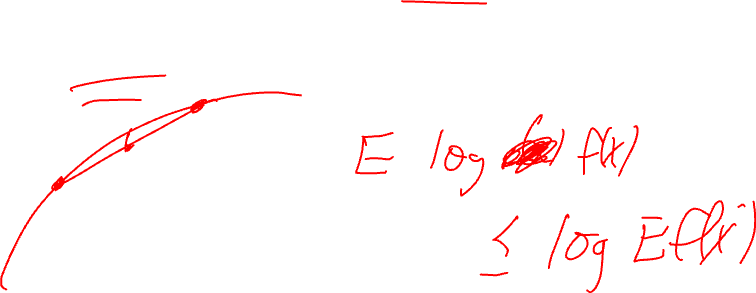 E log f(x)
≤ log E f(x)